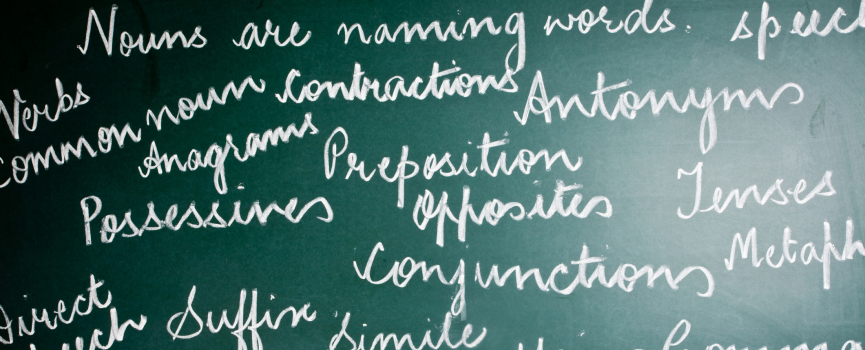 Nouns are naming words. speec
Verbs
common noun contractions Antonyms
Anagrams Preposition
Possessives Opposites Tenses
Conjunctions Metaph
Direct
eech Suffix Simile